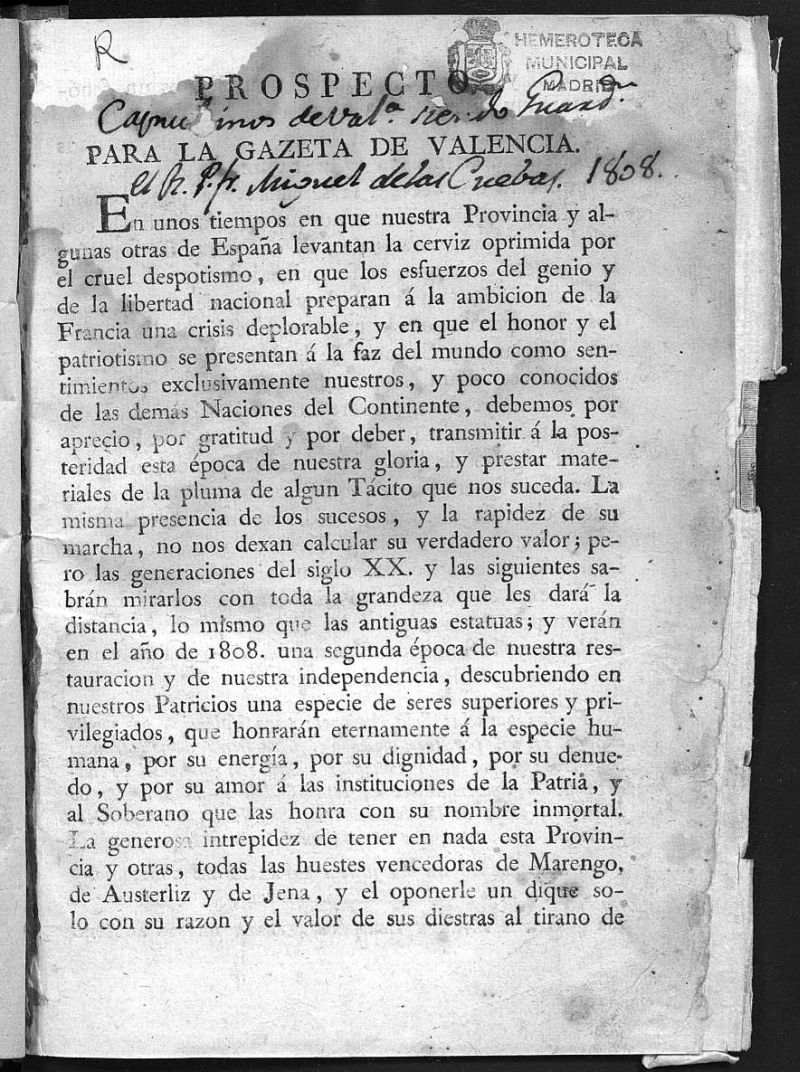 R
HEMEROTECA
MUNICIPAL
MADRID
PROSPECTO
Capuchinos de Vala. siendo Guardn.
PARA LA GAZETA DE VALENCIA.
el R. P. fr. Miguel de las Cuebas. 1808.
En unos tiempos en que nuestra Provincia y al-
gunas otras de España levantan la cerviz oprimida por
el cruel despotismo, en que los esfuerzos del genio y
de la libertad nacional preparan á la ambicion de la
Francia una crisis deplorable, y en que el honor y el
patriotismo se presentan á la faz del mundo como sen-
timientos exclusivamente nuestros, y poco conocidos
de las demás Naciones del Continente, debemos por
aprecio, por gratitud y por deber, transmitir á la pos-
teridad esta época de nuestra gloria, y prestar mate-
riales de la pluma de algun Tácito que nos suceda. La
misma presencia de los sucesos, y la rapidez de su
marcha, no nos dexan calcular su verdadero valor; pe-
ro las generaciones del siglo XX. y las siguientes sa-
brán mirarlos con toda la grandeza que les dará la
distancia, lo mismo que las antiguas estatuas; y verán
en el año de 1808. una segunda época de nuestra res-
tauracion y de nuestra independencia, descubriendo en
nuestros Patricios una especie de seres superiores y pri-
vilegiados, que honrarán eternamente á la especie hu-
mana, por su energía, por su dignidad, por su denue-
do, y por su amor á las instituciones de la Patria, y
al Soberano que las honra con su nombre inmortal.
La generosa intrepidez de tener en nada esta Provin-
cia y otras, todas las huestes vencedoras de Marengo,
de Austerliz y de Jena, y el oponerle un dique so-
lo con su razon y el valor de sus diestras al tirano de